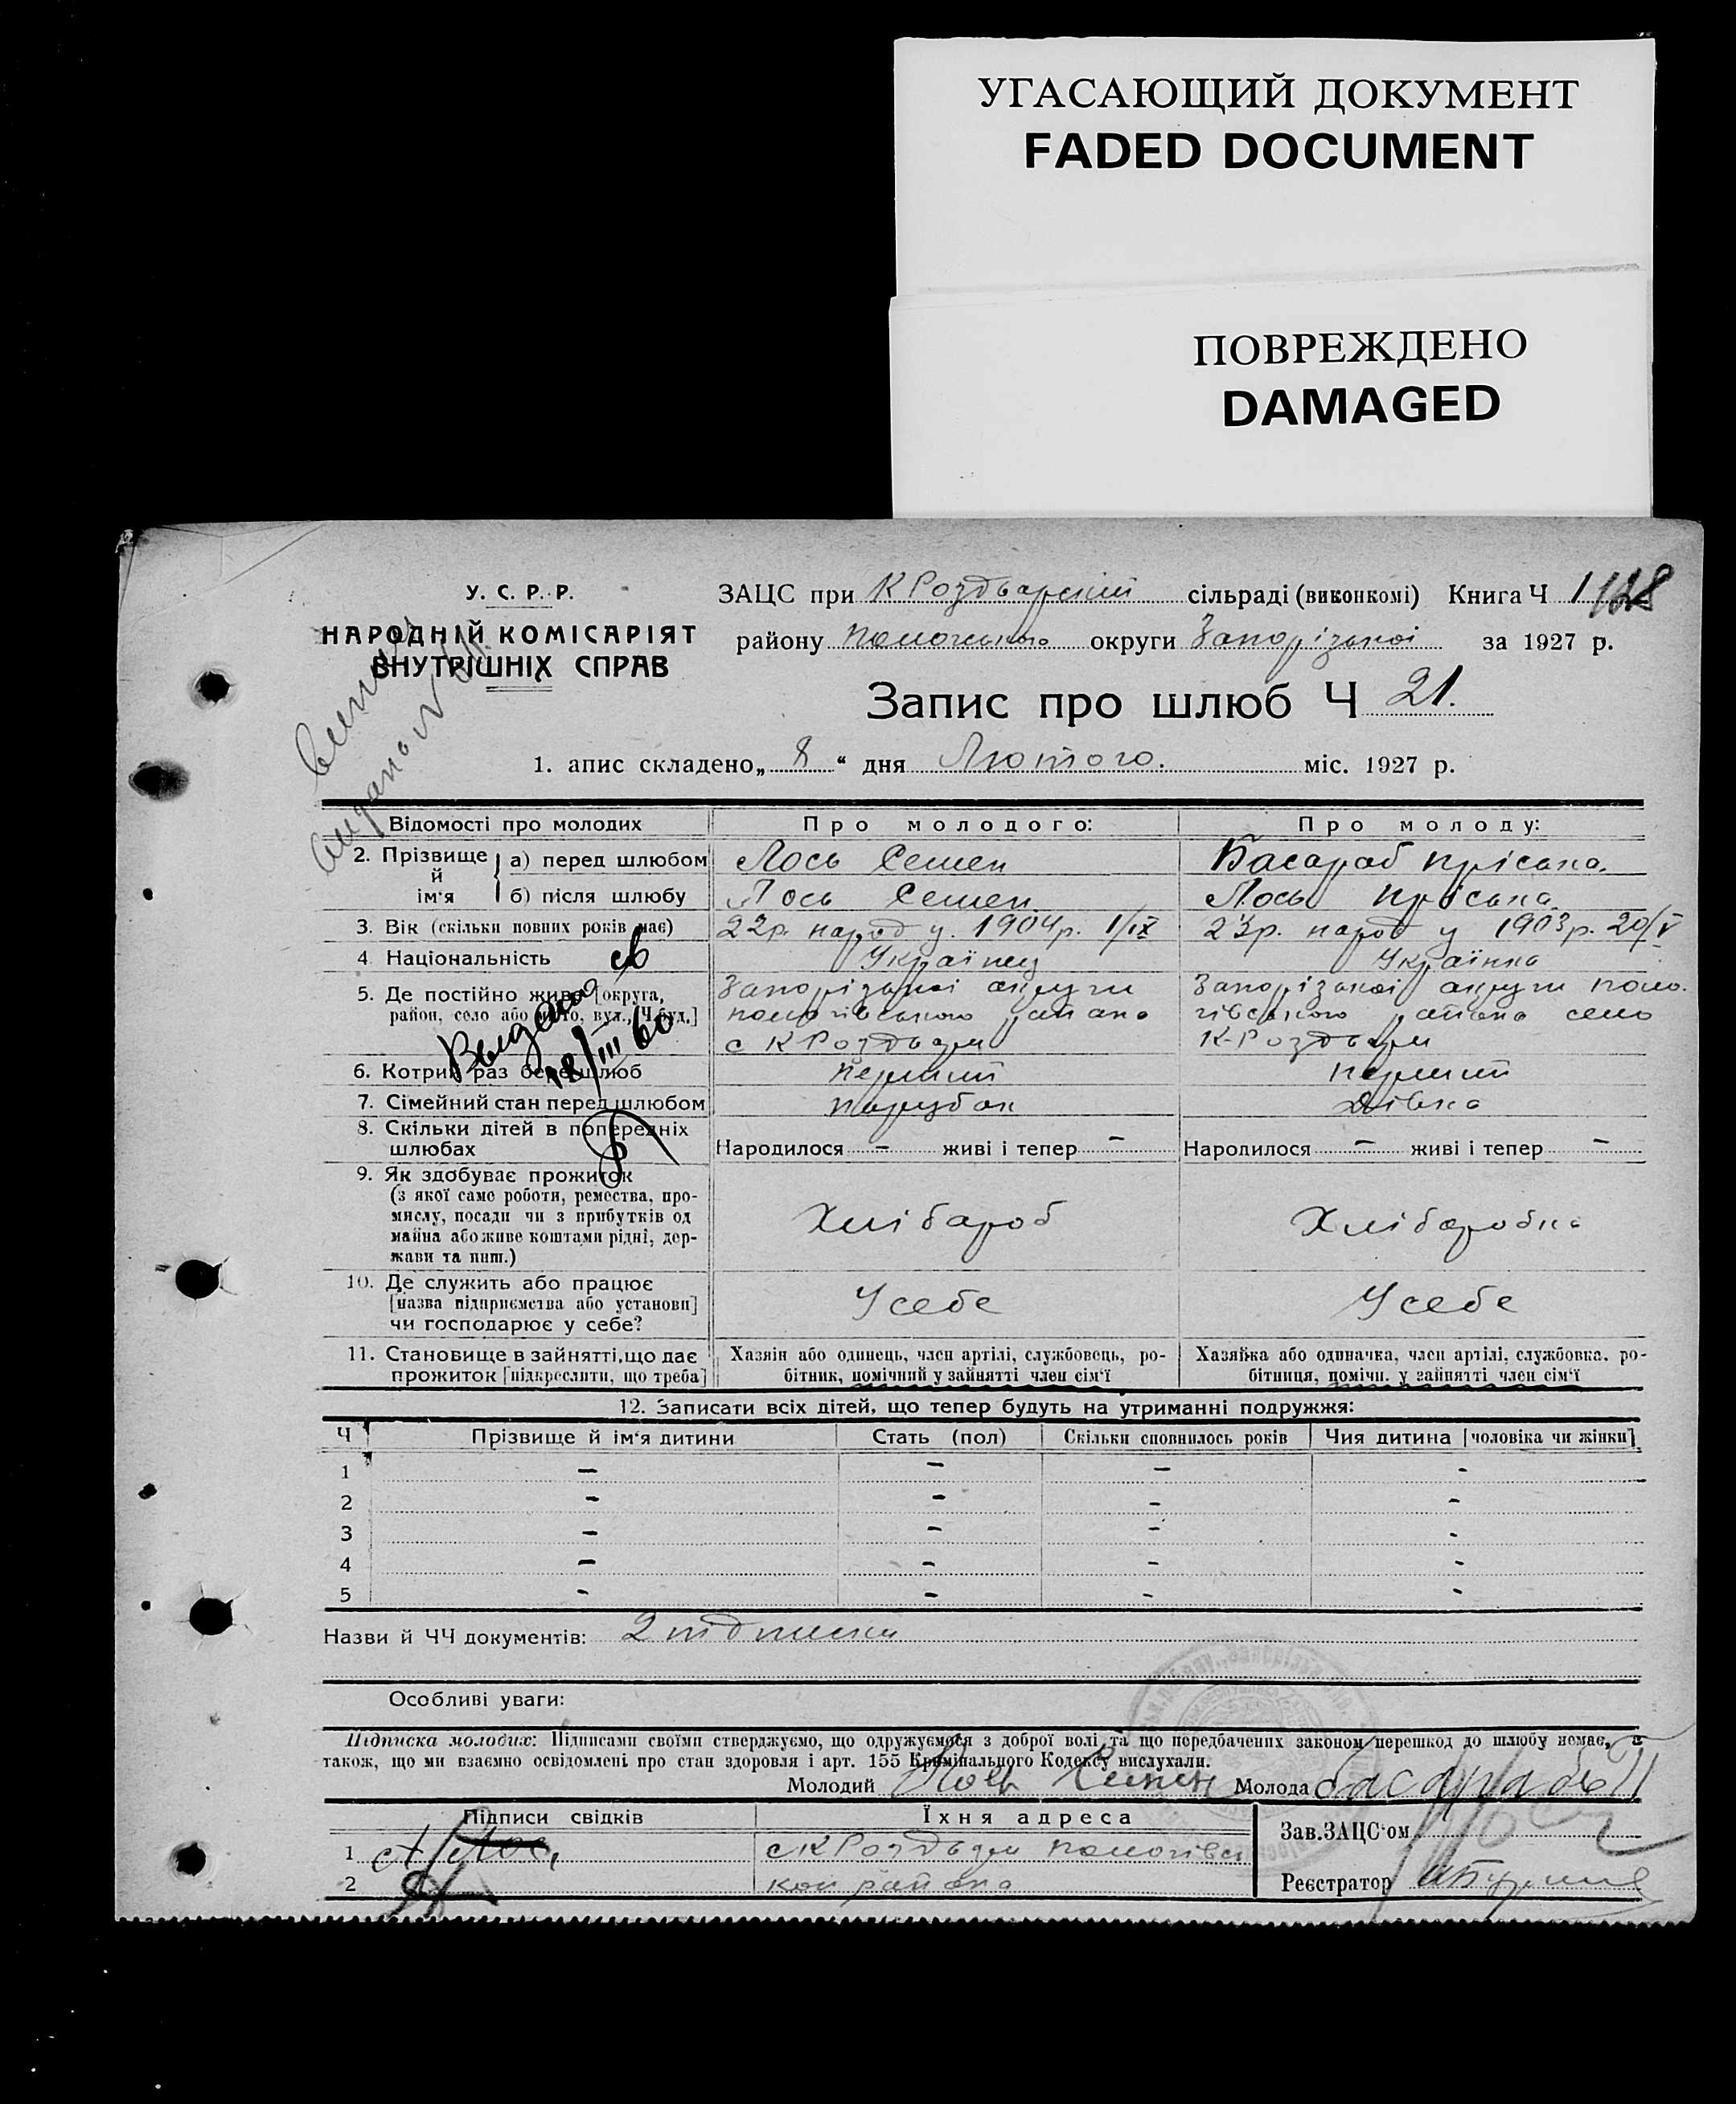 УГАСАЮЩИЙ ДОКУМЕНТ
FADED DOCUMENT
ПОВРЕЖДЕНО
DAMAGED
У. С. Р. Р.
НАРОДНІЙ КОМІСАРІЯТ
ВНУТРІШНІХ СПРАВ
ЗАЦС при К Роздорский сільраді (виконкомі) Книга Ч 1
128
району округи Запорізької за 1927 р.
Запис про шлюб Ч 21.
1. апис складено „ 8 “ дня Лютого. міс. 1927 р.
Відомості про молодих Про молодого: Про молоду:
2. Прізвище й ім'я а) перед шлюбом Лось Семен Басараб Пріська.
б) після шлюбу Лось Семен Лось Пріська
3. Вік (скільки повних років має) 22р. народ у 1904р. 1/IX 23р. народ у 1903р. 20/V
4 Національність Українец Українка
5. Де постійно живе [округа, район, село або місто, вул., Ч буд.] Запорізької округи с К Роздори Запорізької округи поло- гівського району село К-Роздори
Выдано св
12/III 60
6. Котрий раз бере шлюб Перший Перший
7. Сімейний стан перед шлюбом парубок дівка
8. Скільки дітей в попередніх шлюбах Народилося – живі і тепер – Народилося – живі і тепер –
9. Як здобуває прожиток
(з якої саме роботи, ремества, про-
мислу, посади чи з прибутків од
майна або живе коштами рідні, дер-
жави та инш.)
Хлібароб Хлібаробка
10. Де служить або працює
[назва підприємства або установи]
чи господарює у себе?
У себе У себе
11. Становище в зайнятті, що дає
прожиток [підкреслити, що треба]
Хазяін або одинець, член артілі, службовець, ро-
бітник, помічний у зайнятті член сім'ї
Хазяйка або одиначка, член артілі, службовка, ро-
бітниця, помічн. у зайнятті член сім'ї
12. Записати всіх дітей, що тепер будуть на утриманні подружжя:
Ч Прізвище й ім'я дитини Стать (пол) Скільки сповнилось років Чия дитина [чоловіка чи жінки]
1 – – – -
2 – – – -
3 – – – -
4 – – – -
5 - – – -
Назви й ЧЧ документів: 2 підписки
Особливі уваги:
Підписка молодих: Підписами своїми стверджуємо, що одружуємося з доброї волі та що передбачених законом перешкод до шлюбу немає, а
також, що ми взаємно освідомлені про стан здоровля і арт. 155 Кримінального Кодексу вислухали.
Молодий Лось Семен Молода Басарабь П
Підписи свідків Їхня адреса
1 с К Роздори
2 району
Зав. ЗАЦС'ом
Реєстратор